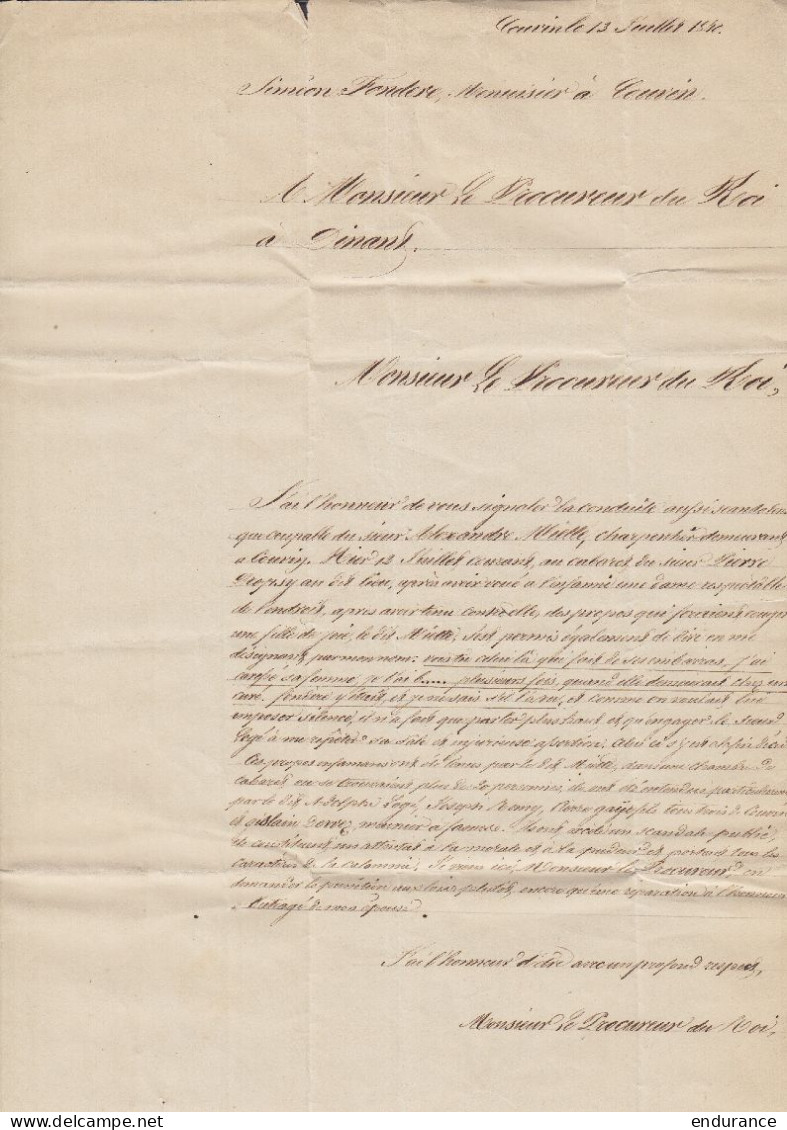 Couvin le 13 Juillet 1840.
Siméon Fondere, Menuisier à Couvin.
A Monsieur Le Procureur du Roi
à Dinant.
Monsieur Le Procureur du Roi,
J'ai l'honneur de vous signaler la conduite aussi scandaleuse
que coupable du sieur Alexandre Miette, charpentier demeurant
a Couvin. Hier 12 Juillet courant, au cabaret du sieur Pierre
au dit lieu, après avoir voué a l'infamie une dame respectable
de l'endroit, après avoir tenu contr'elle, des propos qui feraient rougir
une fille de joie, le dit Miette, s'est permis également de dire en me
désignant par mon nom: vois tu celui là qui fait de ses embarras, j'ai
sa femme je l'ai b..... plusieurs fois, quand elle demeurait chez un
curé. Fondere y était, et je ne sais s'il l'a vu, et comme on voulait lui
imposer silence, il n'a fait que parler plus haut et qu'engager le sieur
à me répéter sa sale et injurieuse assertion, celui ci s'y est
Ces propos infamans ont été tenus par le dit Miette, dans une chambre de
cabaret ou se trouvaient plus de 20 personnes, ils ont été entendus particulièrement
par le dit Adolphe Joseph Remy, fils tous trois de Couvin
et Gislain meunier à un scandale public,
ils constituent un attentat à la morale et à la pudeur et portent tous les
caractères de la calomnie. Je viens ici, Monsieur le Procureur, en
demander la punition aux lois plutôt, encore qu'une réparation à l'honneur
outragé de mon épouse.
J'ai l'honneur d'être avec un profond respect,
Monsieur Le Procureur du Roi,
endurance